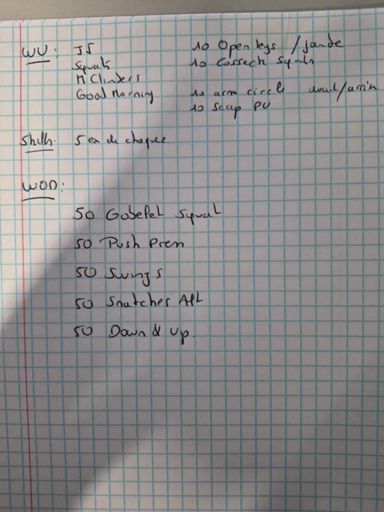 WU: JJ 10 Open legs / jambe
Squats 10 Cossack Squats
M Climbers
Good Morning 10 arm circle avant/arrièr
10 Scap PU
Skills: 5 ex de chaque
WOD:
50 Gobelet Squat
50 Push Press
50 Swings
50 Snatches Alt
50 Down & Up.